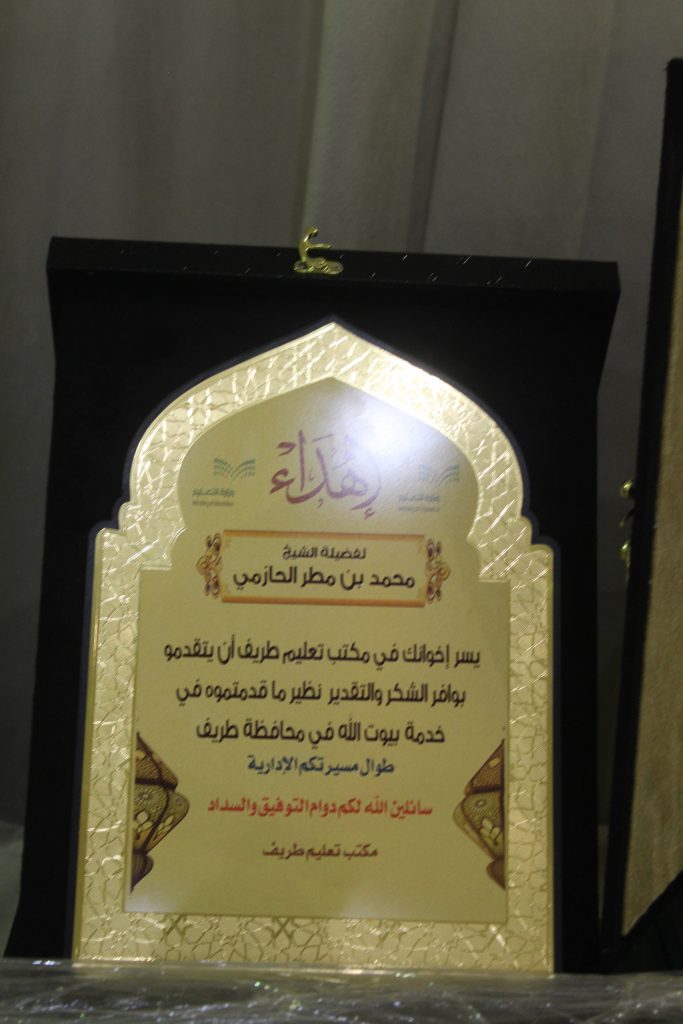 إهداء
وزارة التعليم
Ministry of Education
وزارة التعليم
Ministry of Education
لفضيلة الشيخ
محمد بن مطر الحازمي
يسر إخوانك في مكتب تعليم طريف أن يتقدمو
بوافر الشكر والتقدير نظير ما قدمتموه في
خدمة بيوت الله في محافظة طريف
طوال مسيرتكم الإدارية
سائلين الله لكم دوام التوفيق والسداد
مكتب تعليم طريف